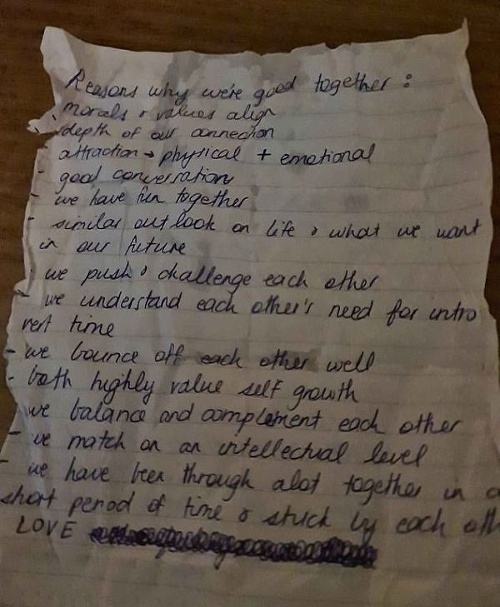 Reasons why we're good together :
- morals & values align
- depth of our connection
- attraction → physical + emotional
- good conversation
- we have fun together
- similar outlook on life & what we want
in our future
- we push & challenge each other
- we understand each other's need for intro
vert time
- we bounce off each other well
- both highly value self growth
- we balance and complement each other
- we match on an intellectual level
- we have been through alot together in a
short period of time & stuck by each oth
LOVE